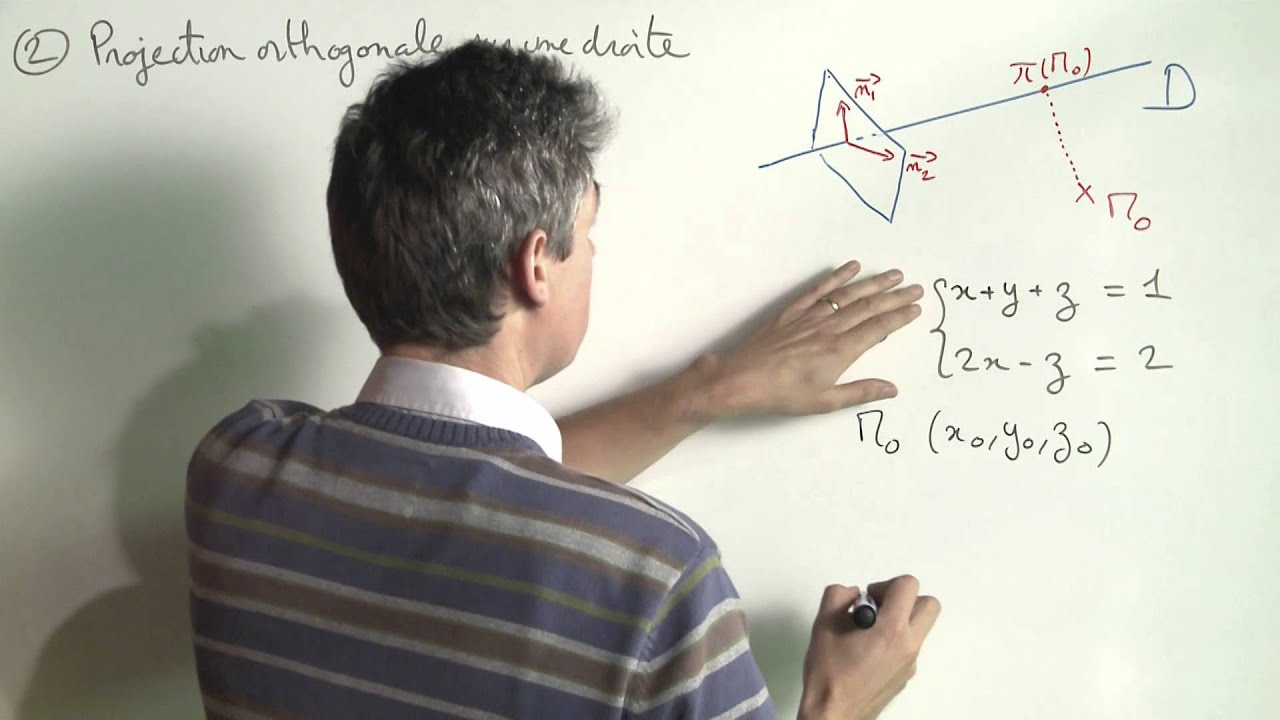 ② Projection orthogonale une droite
π(M₀)
D
n₁
n₂
M₀
x+y+z = 1
2x-z = 2
M₀ (x₀,y₀,z₀)